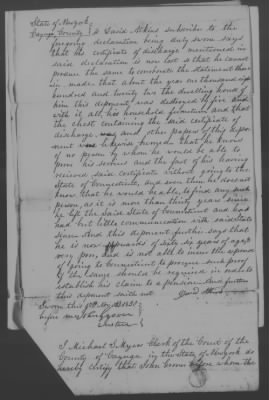 State of New York
Cayuga County } I David Atkins subscriber to the
foregoing declaration being duly sworn says
that the certificate of discharge mentioned in
said declaration is now lost so that he cannot
produce the same to corroborate the statement there
in made. that about the year one thousand eight
hundred and twenty two the dwelling house of
him this deponent was destroyed by fire and
with it all his household furniture and that
the chest containing the said certificate of
discharge and other papers of this depo
nent was likewise burned that he knows
of no person by whom he would be able to
prove his services and the fact of his having
received said certificate without going to the
State of Connecticut, and even then he does not
know that he would be able to find any such
person, as it is more than thirty years since
he left the said State of Connecticut and has
had but little communication with said State
since And this deponent further says that
he is now upwards of sixty six years of age &
very poor, and is not able to incur the expense
of going to Connecticut to procure such proof
if the same should be required in order to
establish his claim to a pension. And further
this deponent saith not David Atkins
Sworn this
before me John Grover
Justice
I Michael S. Myers Clerk of the Court of the
County of Cayuga in the State of New York do
hereby certify that John Grover before whom the